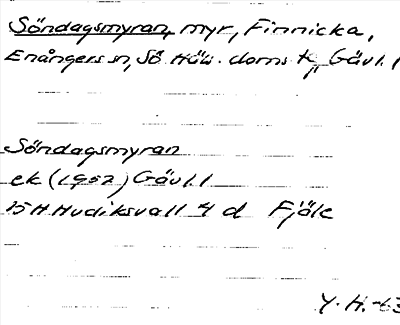 Söndagsmyran, myr, Finnicka,
Enångers sn, Sö. Häls. doms tg, Gävl. l
Söndagsmyran
ek (1952) Gävl. l
15 H Hudiksvall 4 d Fjäle
Y. H. -63